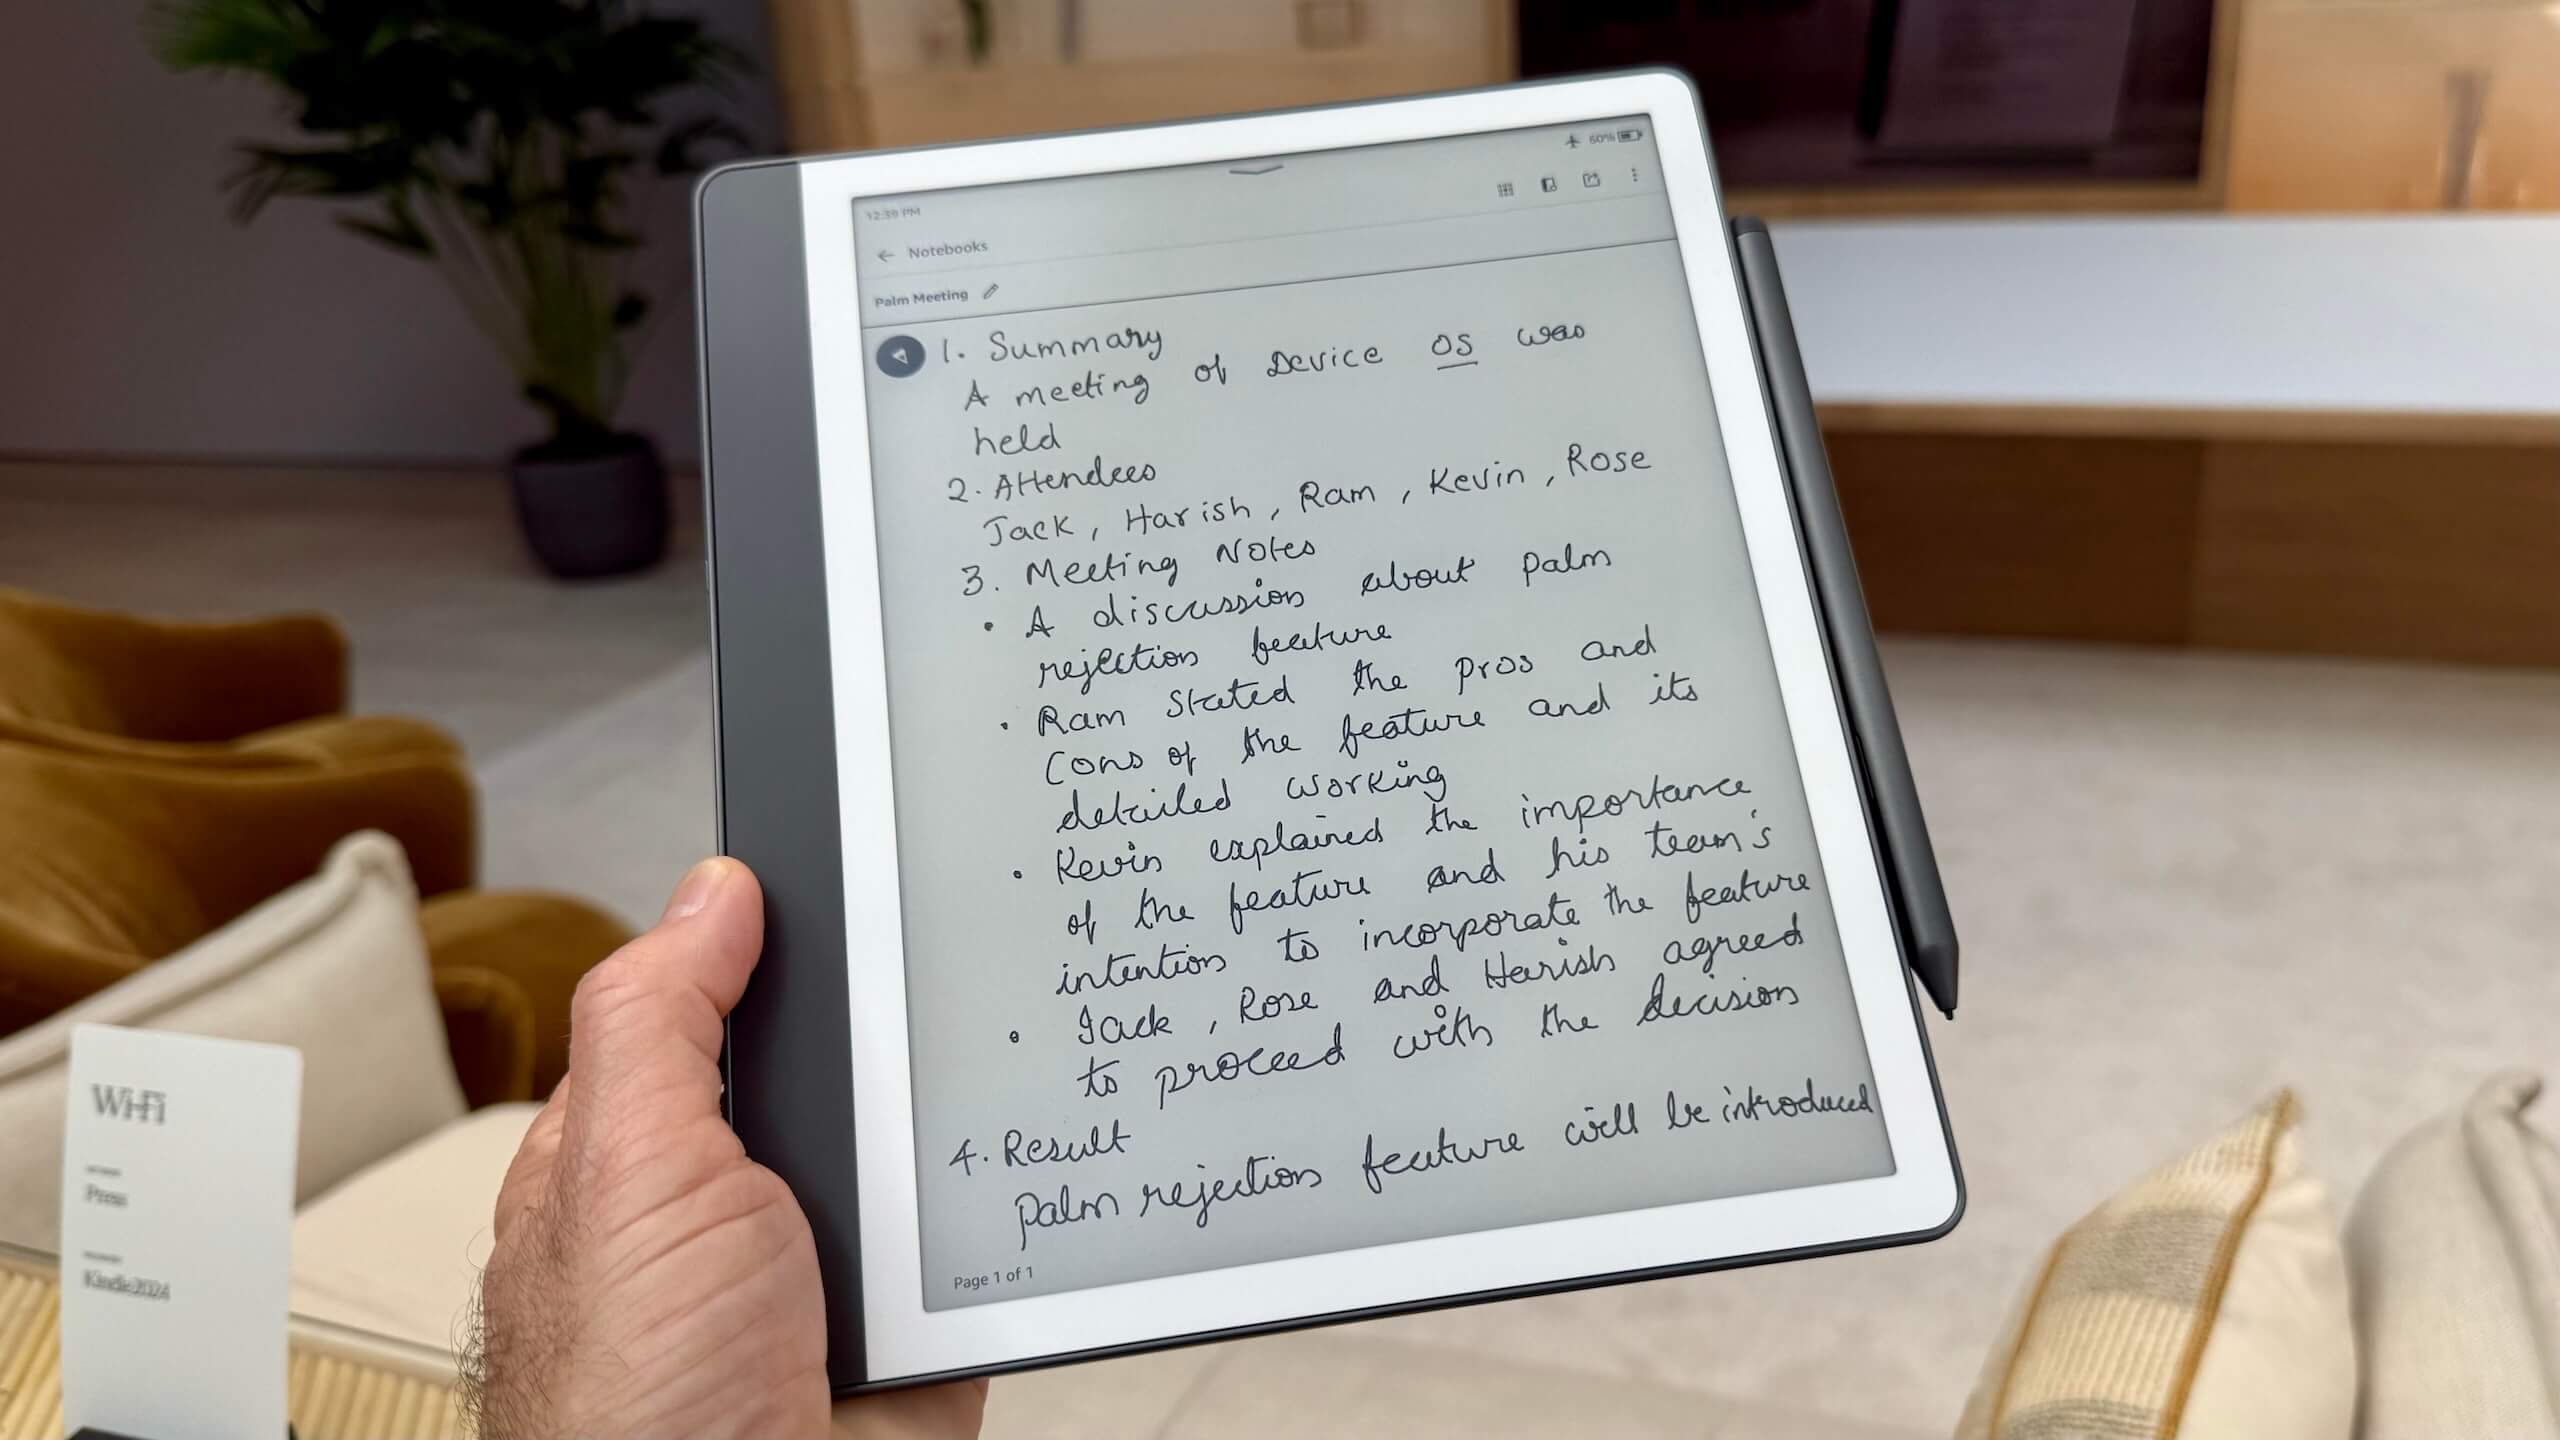 12:39 PM
60%
← Notebooks
Palm Meeting
1. Summary
A meeting of Device OS was
held
2. Attendees
Jack, Harish, Ram, Kevin, Rose
3. Meeting Notes
• A discussion about palm
rejection feature
• Ram stated the pros and
Cons of the feature and its
detailed working
• Kevin explained the importance
of the feature and his team's
intention to incorporate the feature
• Jack, Rose and Harish agreed
to proceed with the decision
4. Result
Palm rejection feature will be introduced
Page 1 of 1
Wi-Fi
Press
Kindle2024